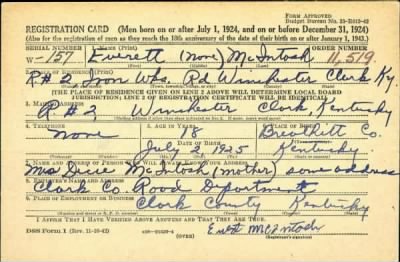 Form Approved
Budget Bureau No. 33-R012-42
REGISTRATION CARD (Men born on or after July 1, 1924, and on or before December 31, 1924)
(Also for the registration of men as they reach the 18th anniversary of the date of their birth on or after January 1, 1943.)
SERIAL NUMBER 1. NAME (Print) ORDER NUMBER
W-157 Everett (none) McIntosh 11,519
R#2, Iron Wks. Rd Winchester Clark Ky.
(THE PLACE OF RESIDENCE GIVEN ON LINE 2 ABOVE WILL DETERMINE LOCAL BOARD
JURISDICTION; LINE 2 OF REGISTRATION CERTIFICATE WILL BE IDENTICAL)
3. MAILING ADDRESS
R#2 Winchester Clark, Kentucky
4. TELEPHONE 5. AGE IN YEARS 6. PLACE OF BIRTH
None 18 Breathitt Co.
DATE OF BIRTH
July 1925 Kentucky
7. NAME AND ADDRESS OF PERSON WHO WILL ALWAYS KNOW YOUR ADDRESS
Mrs McIntosh (mother) same address
8. EMPLOYER'S NAME AND ADDRESS
Clark Co. Road Department
9. PLACE OF EMPLOYMENT OR BUSINESS
Clark County Kentucky
I AFFIRM THAT I HAVE VERIFIED ABOVE ANSWERS AND THAT THEY ARE TRUE.
DSS Form 1 (Rev. 11-16-42) (OVER) McIntosh
(Registrant's signature)